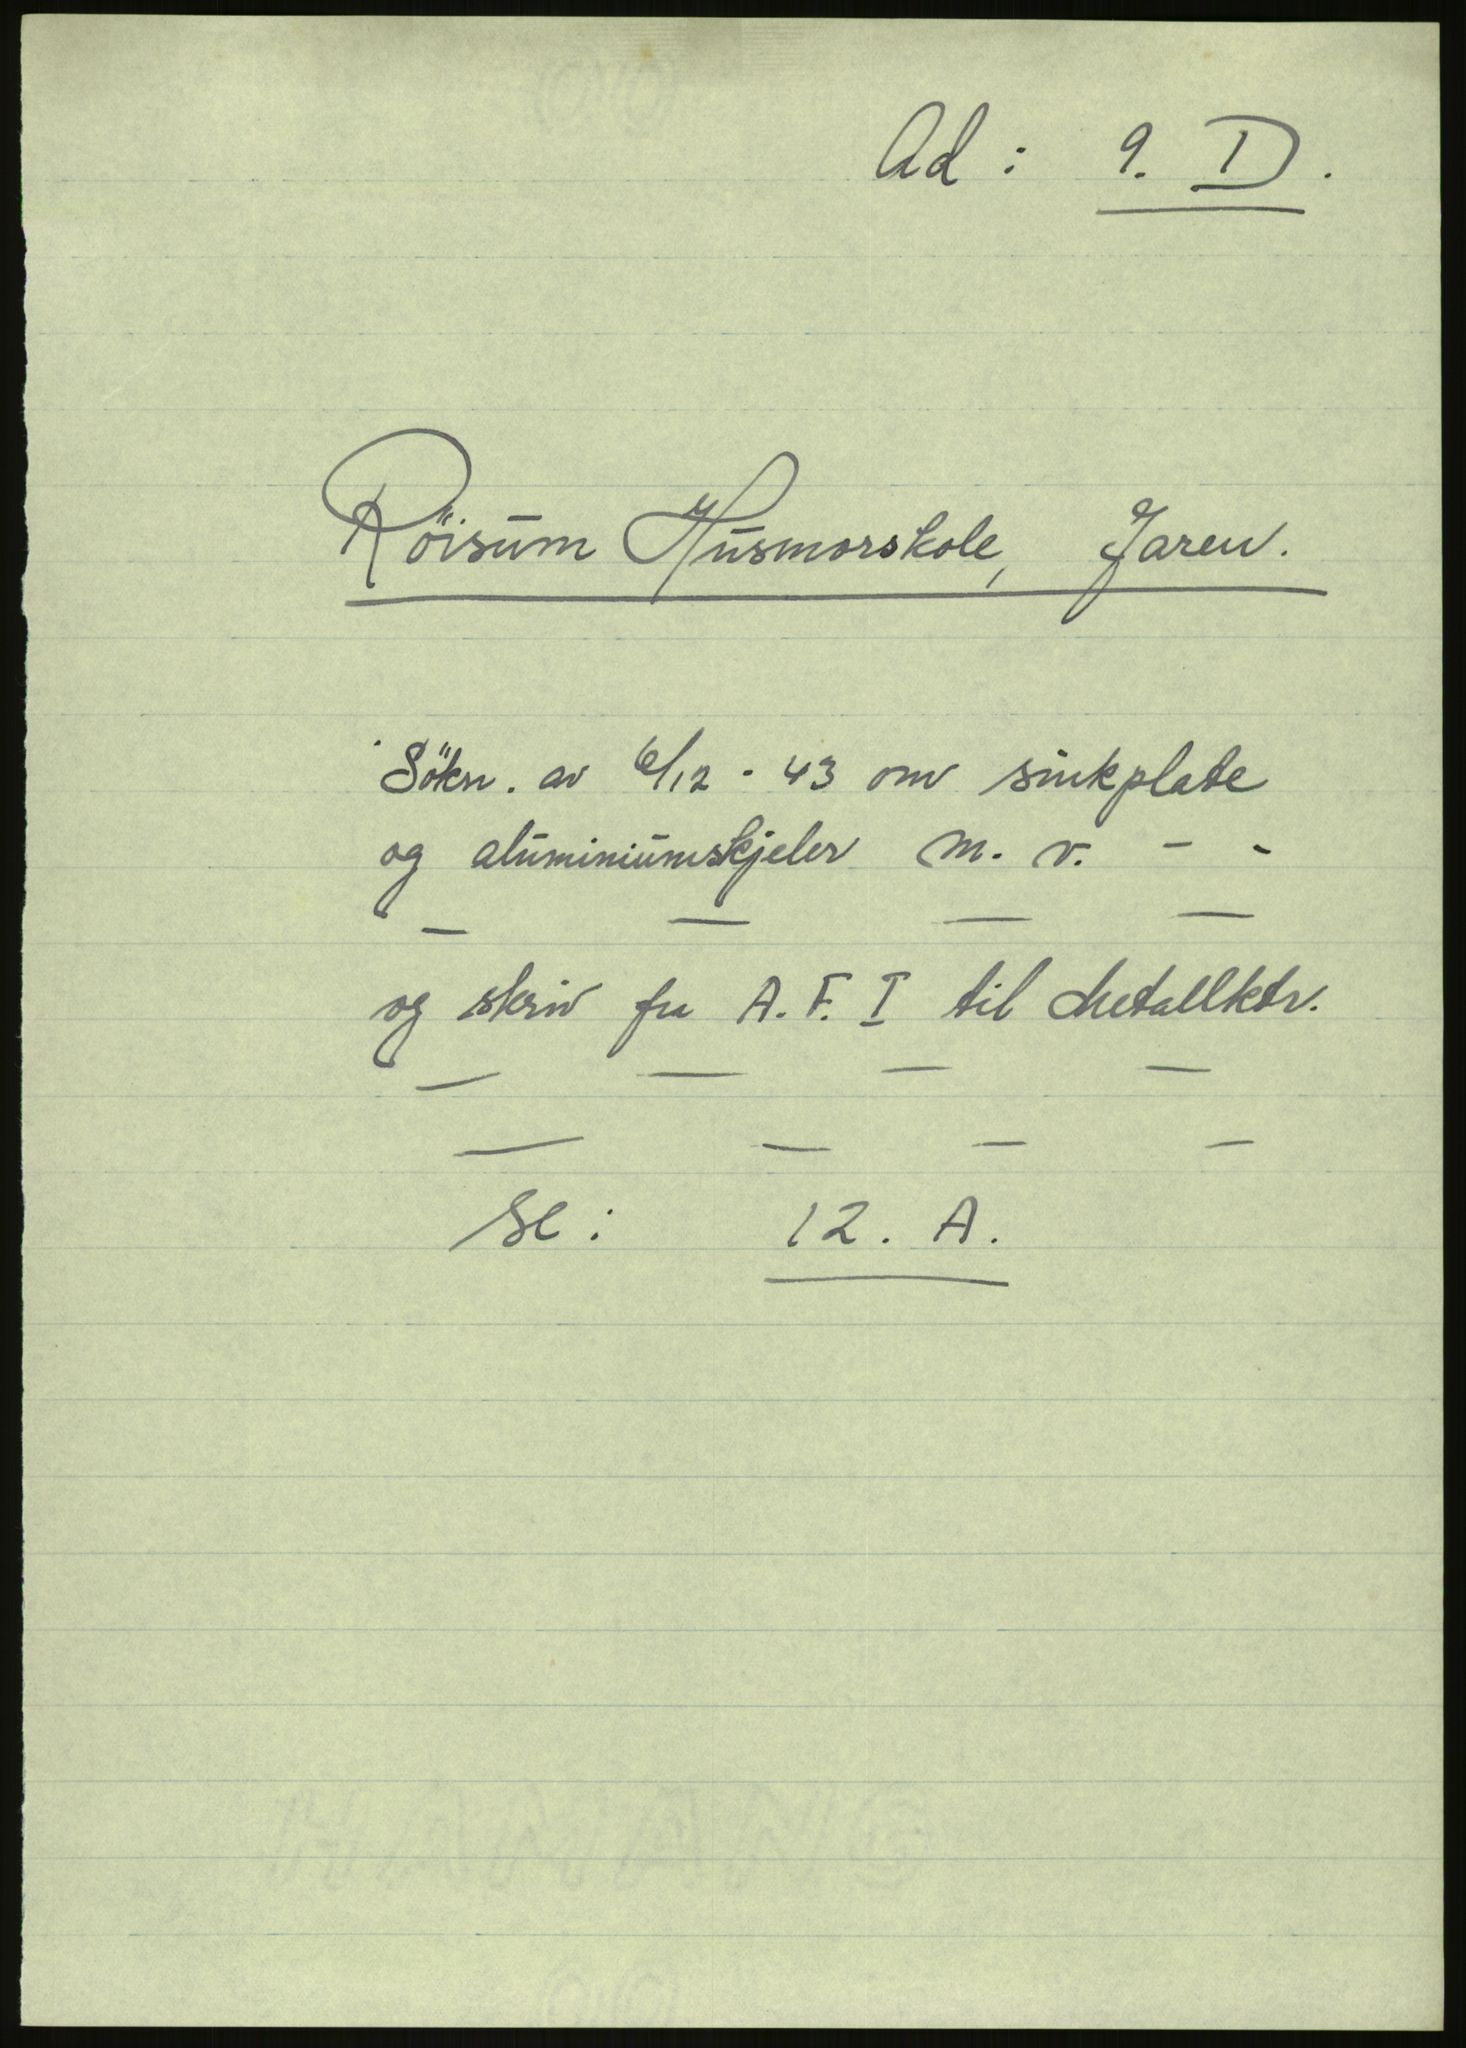 Ad: 9. D.
Röisum Husmorskole, Jaren.
Sökn. av 6/12 - 43 om sinkplate
og aluminiumskjeler m. v. - -
— — — —
og skriv fra A. F. I til Metallktr.
— — — —
— — — —
Se: 12. A.